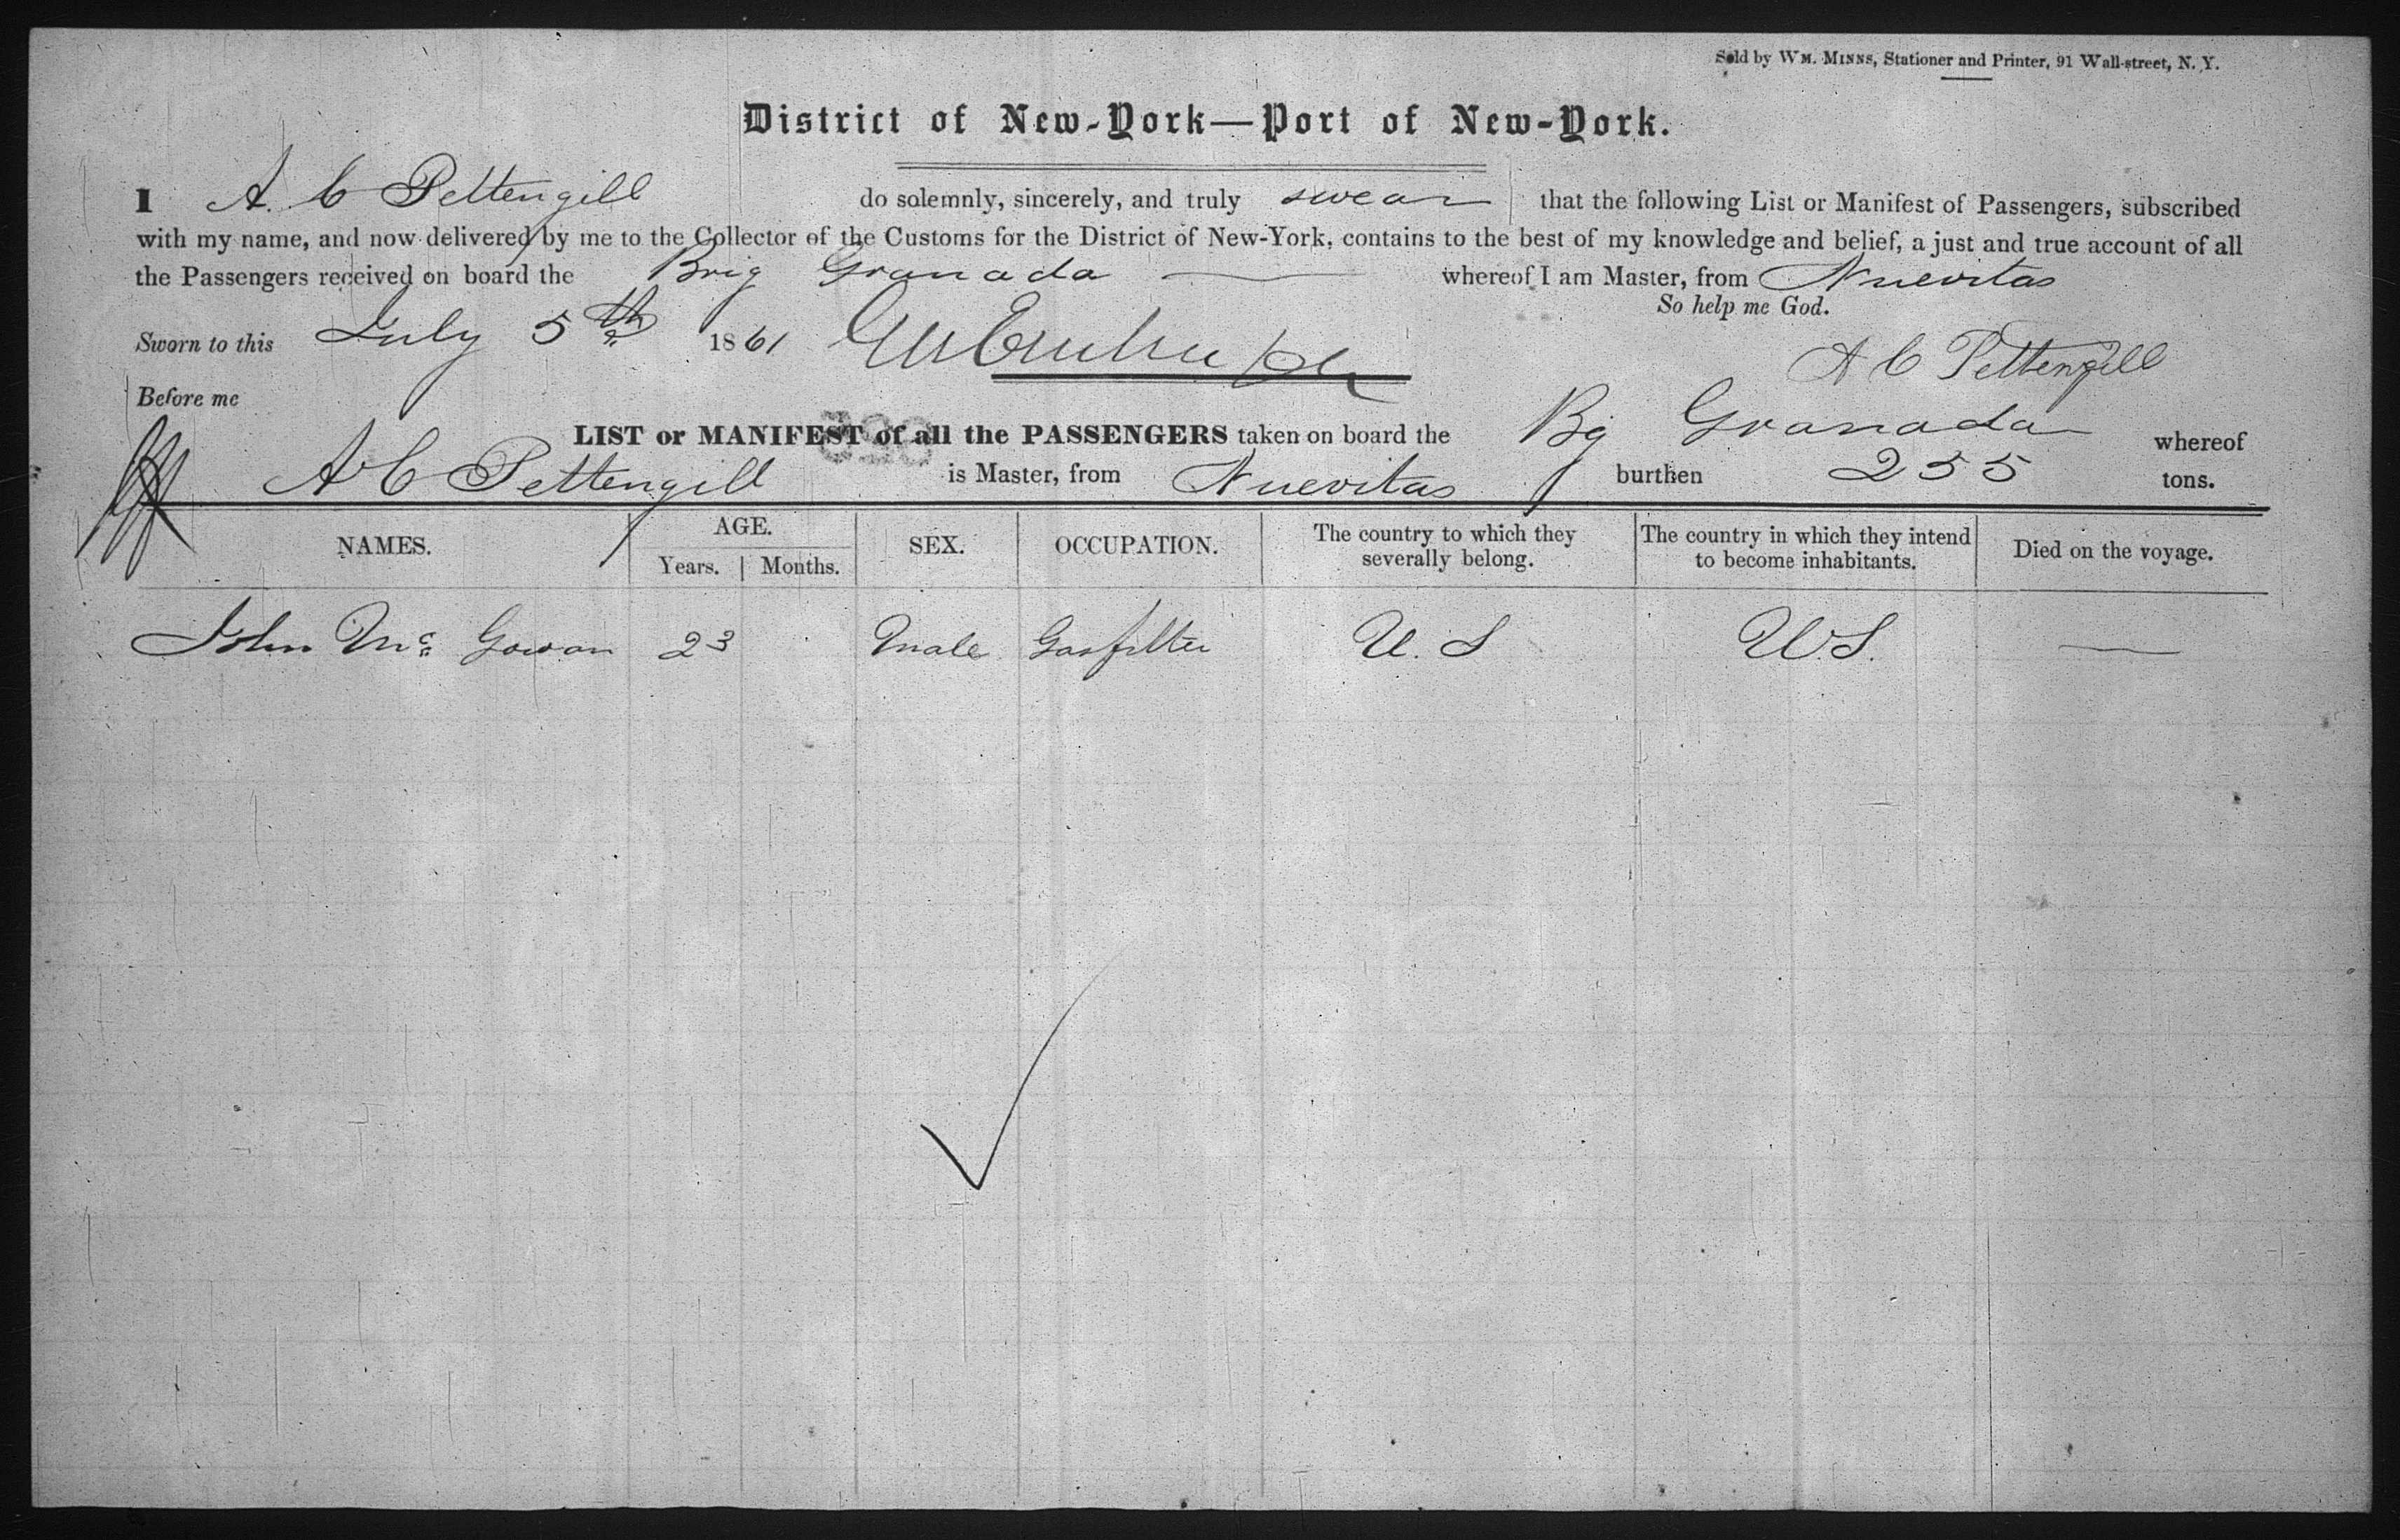 Sold by WM. MINNS, Stationer and Printer, 91 Wall-street, N. Y.
District of New-York—Port of New-York.
I A. C Pettengill do solemnly, sincerely, and truly swear that the following List or Manifest of Passengers, subscribed
with my name, and now delivered by me to the Collector of the Customs for the District of New-York, contains to the best of my knowledge and belief, a just and true account of all
the Passengers received on board the Brig Granada whereof I am Master, from Nuevitas
So help me God.
Sworn to this July 5th 1861
A C Pettengill
Before me
LIST or MANIFEST of all the PASSENGERS taken on board the Bg Granada whereof
A C Pettengill is Master, from Nuevitas burthen 255 tons.
NAMES. AGE. Years. Months. SEX. OCCUPATION. The country to which they severally belong. The country in which they intend to become inhabitants. Died on the voyage.
John Mc Gowan 23 Male Gasfitter U. S U.S. —